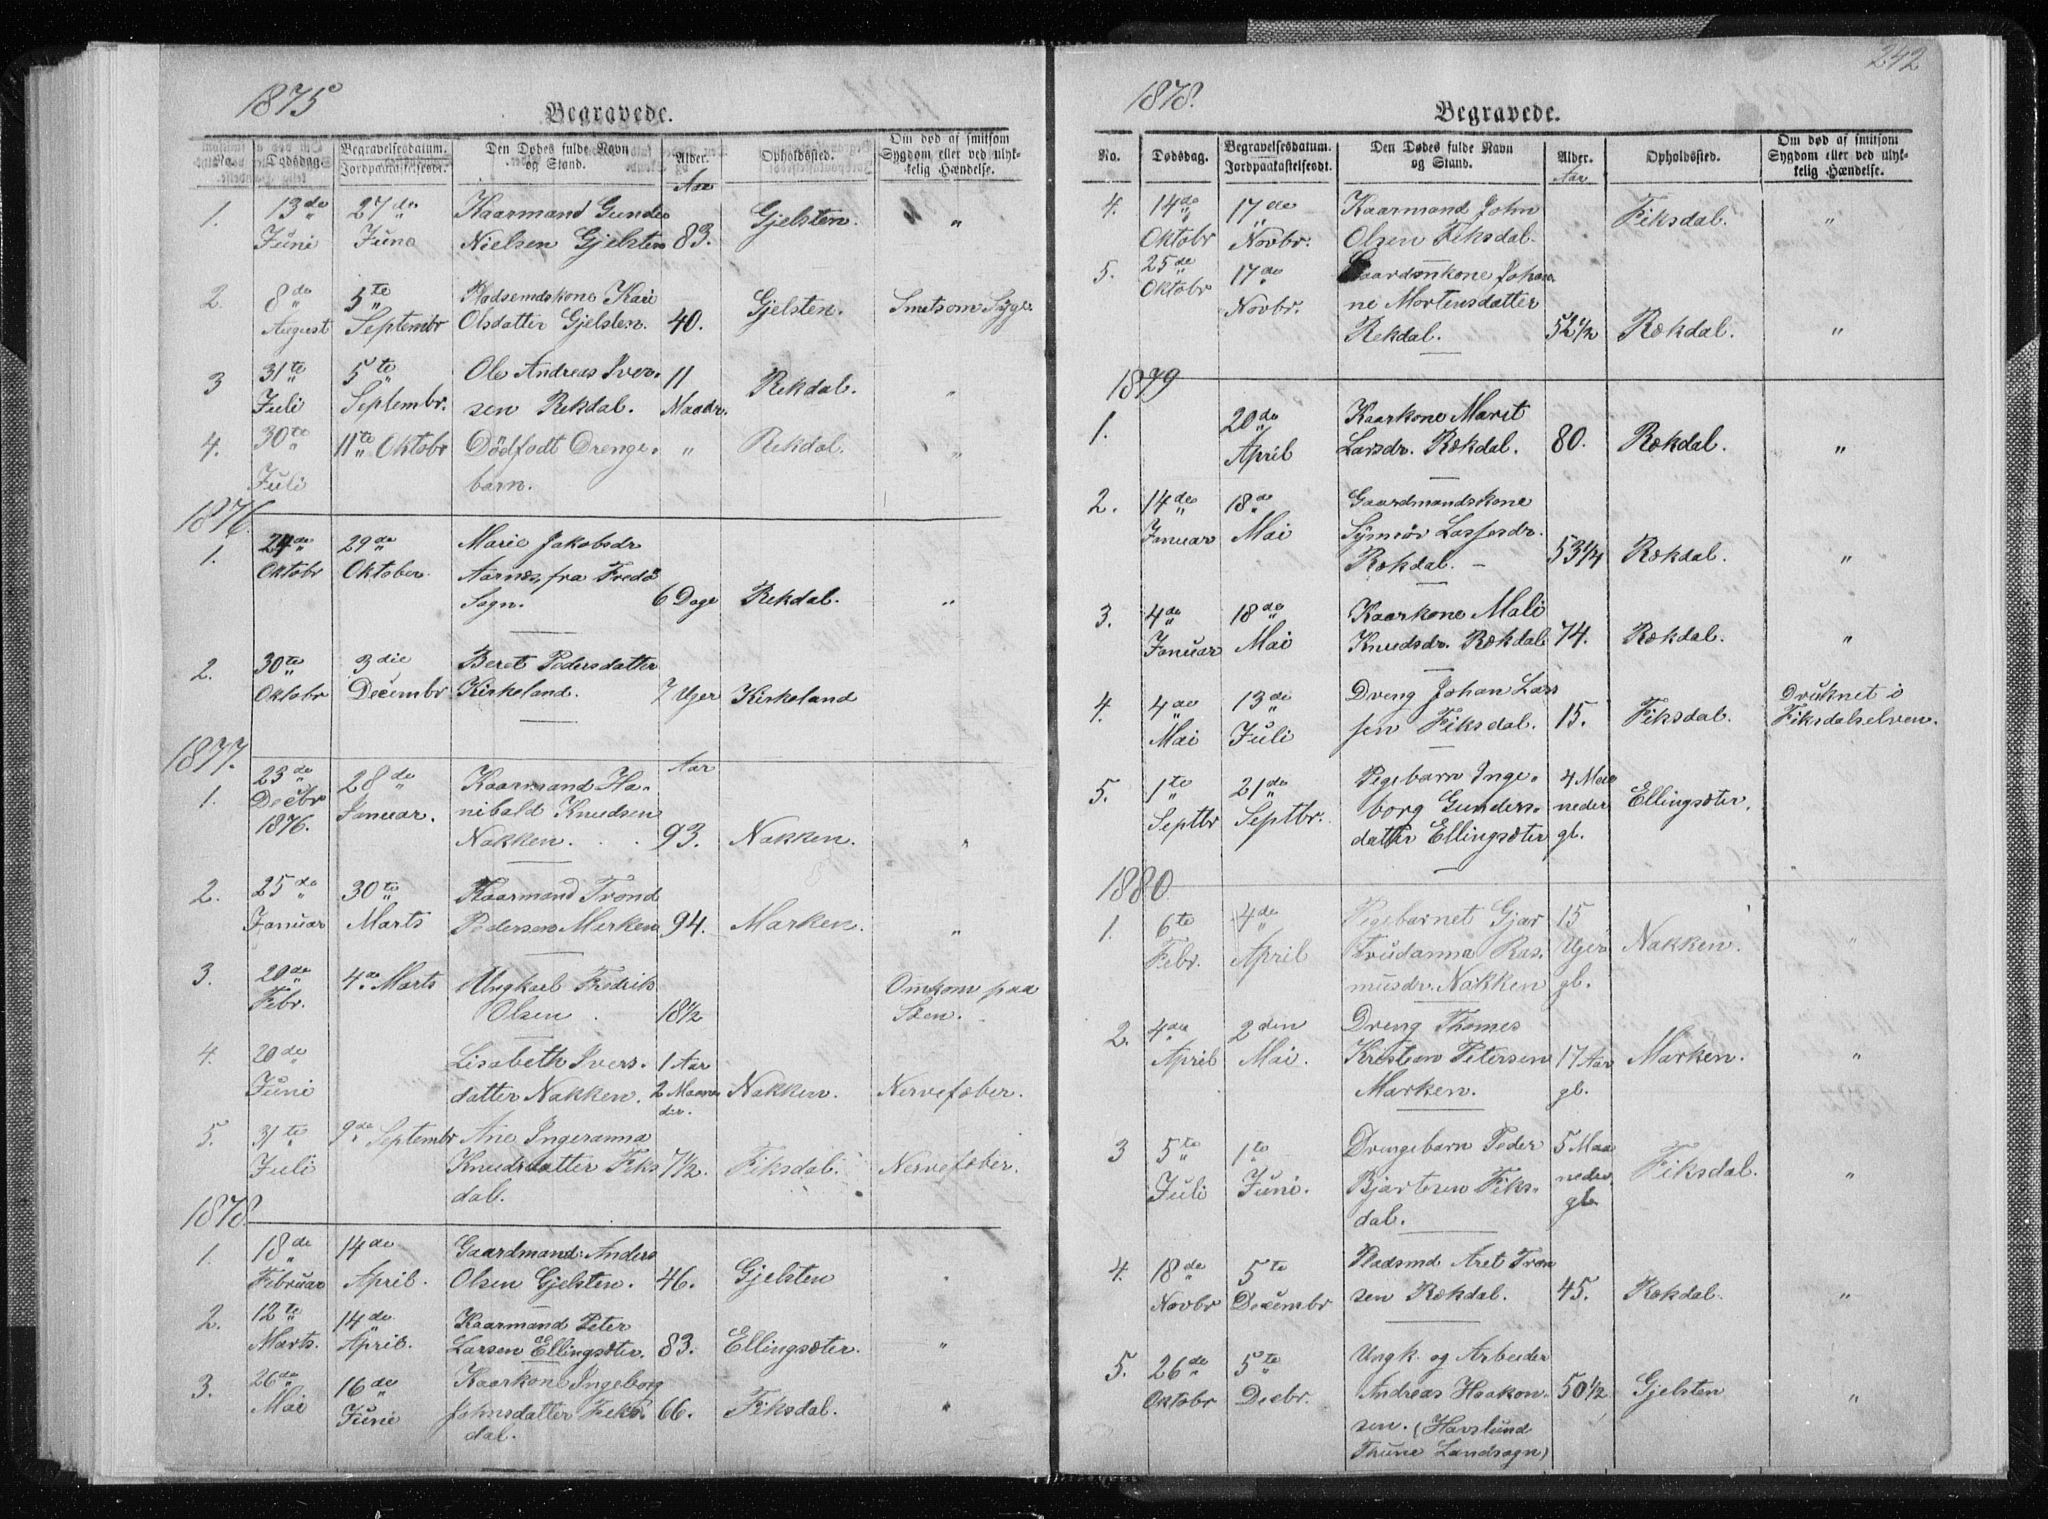 1875
Begravede.
No. Dødsdag. Begravelsesdatum. Jordpaakastelsesdt. Den Dødes fulde Navn og Stand. Alder. Opholdssted. Om død af smitsom Sygdom eller ved ulykkelig Hændelse.
Aar
1. 13de 27de Kaarmand Gunder
Juni Juno Nielsen Gjelsten 83. Gjelsten. "
2. 8de 5te Pladsemdskone Kari
August Septembr Olsdatter Gjelsten. 40. Gjelsten. Smetsom Syge.
3 31te 5te Ole Andreas Iver- 11 Rekdal. "
Juli Septembr. sen Rekdal. Maadr.
4. 30te 11te Oktobr Dödfodt Drenge- " Rekdal. "
Juli barn.
1876.
1. 24de 29de Marie Jakobsdr
Oktobr Oktober. Aarnes, fra Fredö
Sogn. 6 Dage Rekdal. "
2. 30te 3die Beret Pedersdatter
Oktobr Decembr Kirkeland. 7 Uger Kirkeland
1877. Aar
1. 23de 28de Kaarmand Ha-
Decbr Januar. nibald Knudsen
1876. Nakken. 93. Nakken. "
2. 25de 30te Kaarmand Trond
Januar Marts Pedersen Marken 94. Marken. "
3. 20de 4de Marts Ungkarl Fredrik Omkom paa
Febr. Olsen 18½ Söen.
4. 20de Lisabeth Ivers- 1 Aar
Juni datter Nakken. 2 Maane Nakken. Nervefeber.
der.
5. 31te 9de Septembr Ane Ingeranna
Juli Knudsdatter Fiks 7½. Fiksdal. Nervefeber.
dal.
1878.
1. 18de 14de Gaardmand Anders
Februar April. Olsen Gjelsten. 46. Gjelsten "
2. 12te 14de Kaarmand Peter
Marts. April. Larsen Ellingsæter. 83. Ellingsæter. "
3. 26de 16de Kaarkone Ingeborg
Mai Juni Johnsdatter Fiks 66. Fiksdal. "
dal.
242
1878.
Begravede.
No. Dødsdag. Begravelsesdatum. Jordpaakastelsesdt. Den Dødes fulde Navn og Stand. Alder. Opholdssted. Om død af smitsom Sygdom eller ved ulykkelig Hændelse.
Aar
4. 14de 17de Kaarmand John Fiksdal. "
Oktobr Novbr. Olsen Fiksdal.
5. 25de 17de Gaardmkone Johan
Oktobr Novbr. ne Mortensdatter
Rekdal. 52½ Rækdal. "
1879
1. 20de Kaarkone Marit
April Larsdr. Rækdal. 80. Rækdal. "
2. 14de 18de Gaardmandskone
Januar Mai Synnöv Lassesdr.
Rækdal. 53¼ Rækdal. "
3. 4de 18de Kaarkone Mali
Januar Mai Knudsdr. Rækdal 74. Rækdal. "
4. 4de 13de Dreng Johan Lars Druknet i
Mai Juli sen Fiksdal. 15. Fiksdal. Fiksdalselven.
5. 1te 21de Pigebarn Inge- 4 Maa
Septbr Septbr. borg Gunders- neder Ellingsæter.
datter Ellingsæter gl. "
1880
1. 6te 4de Pigebarnet Gjær 15
Febr. April Trudanna Ras- Uger Nakken. "
musdr. Nakken gl.
2. 4de 2den Dreng Thomes
April Mai. Kristian Petersen 17 Aar Marken. "
Marken. gl.
3 5te 1te Drengebarn Peder 5 Maa
Juli Juni. Bjartesen Fiks- neder Fiksdal. "
dal. gl.
4. 18de 5te Pladsmd Aret Tron
Novbr Decembr sen Rækdal. 45. Rækdal. "
5. 26de 5te Ungk. og Arbeider
Oktobr Decbr. Andreas Haakon- 50½ Gjelsten "
sen. (Havslund
Thune Landsogn)